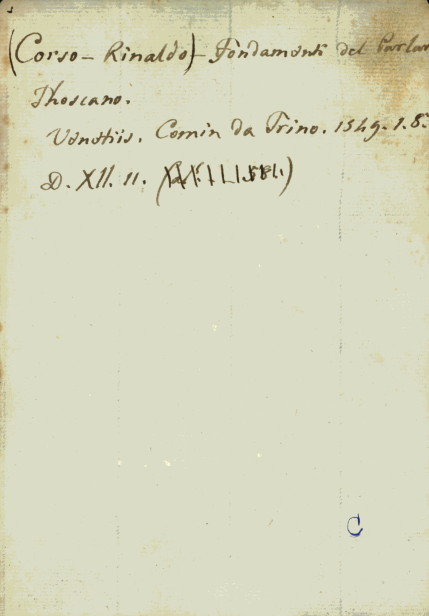 (Corso - Rinaldo) - Fondamenti del Parlar
Thoscano.
Venetiis. Comin da Trino. 1549. 1. 8.
D. XII. 11.
C